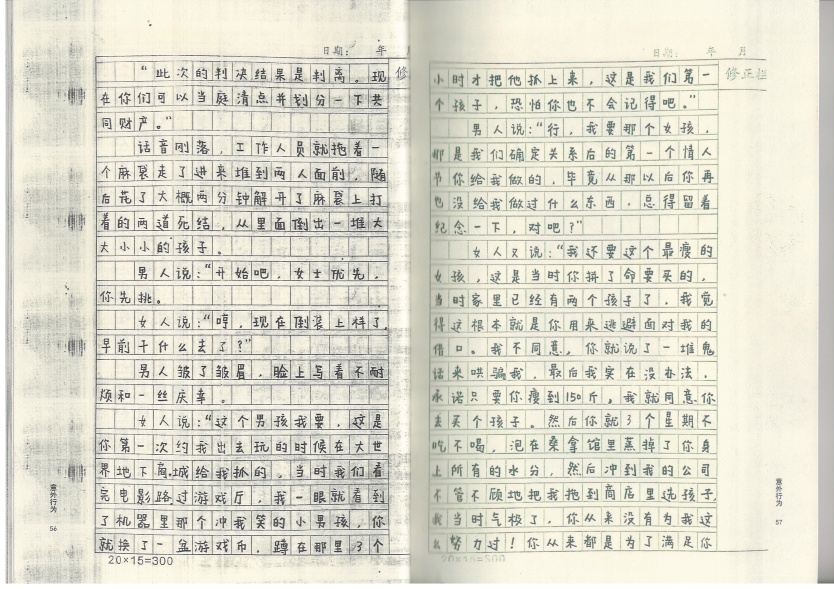 日期： 年 月
“此次的判决结果是判离。现
在你们可以当庭清点并划分一下共
同财产。”
话音刚落，工作人员就拖着一
个麻袋走了进来堆到两人面前，随
后花了大概两分钟解开了麻袋上打
着的两道死结，从里面倒出一堆大
大小小的孩子。
男人说：“开始吧，女士优先，
你先挑。
女人说：“哼，现在倒装上样了，
早前干什么去了？”
男人皱了皱眉，脸上写着不耐
烦和一丝庆幸。
女人说：“这个男孩我要，这是
你第一次约我出去玩的时候在大世
界地下商城给我抓的，当时我们看
完电影路过游戏厅，我一眼就看到
了机器里那个冲我笑的小男孩，你
就换了一盆游戏币，蹲在那里3个
20×15=300
意外行为
56
日期： 年 月
修正栏
小时才把他抓上来，这是我们第一
个孩子，恐怕你也不会记得吧。”
男人说：“行，我要那个女孩，
那是我们确定关系后的第一个情人
节你给我做的，毕竟从那以后你再
也没给我做过什么东西，总得留着
纪念一下，对吧？”
女人又说：“我还要这个最瘦的
女孩，这是当时你拼了命要买的，
当时家里已经有两个孩子了，我觉
得这根本就是你用来逃避面对我的
借口。我不同意，你就说了一堆鬼
话来哄骗我，最后我实在没办法，
承诺只要你瘦到150斤，我就同意你
去买个孩子。然后你就3个星期不
吃不喝，泡在桑拿馆里蒸掉了你身
上所有的水分，然后冲到我的公司
不管不顾地把我拖到商店里选孩子，
我当时气极了，你从来没有为我这
么努力过！你从来都是为了满足你
20×15=300
意外行为
57